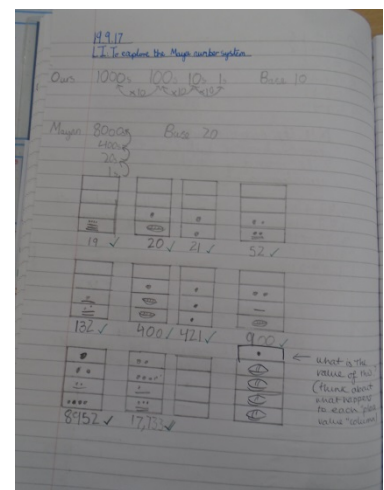 19.9.17
L.I: To explore the Maya number system.
Ours 1000s 100s 10s 1s Base 10
x10 x10 x10
Mayan 8000s Base 20
400s
20s
1s
19 ✓ 20 ✓ 21 ✓ 52 ✓
132 ✓ 400 ✓ 421 ✓ 900 ✓
8952 ✓ 17,733 ✓
← what is the
value of this?
(think about
what happens
to each "place
value" column)